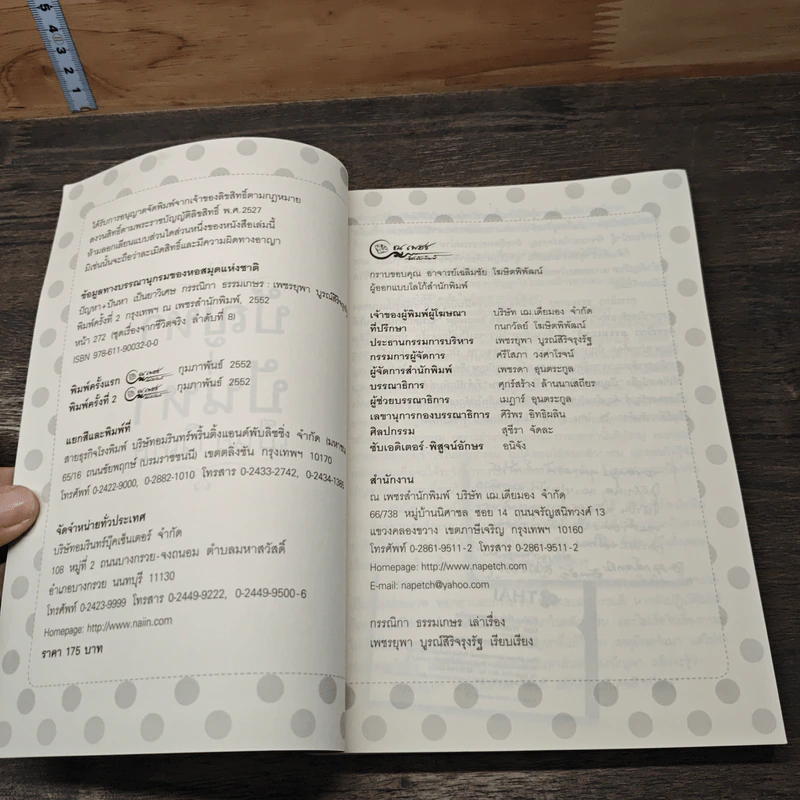 5 4 3 2 1
ได้รับการอนุญาตจัดพิมพ์จากเจ้าของลิขสิทธิ์ตามกฎหมาย
สงวนสิทธิ์ตามพระราชบัญญัติลิขสิทธิ์ พ.ศ.2527
ห้ามลอกเลียนแบบส่วนใดส่วนหนึ่งของหนังสือเล่มนี้
มิเช่นนั้นจะถือว่าละเมิดสิทธิ์และมีความผิดทางอาญา
ข้อมูลทางบรรณานุกรมของหอสมุดแห่งชาติ
ปัญหา+ปันหา เป็นยาวิเศษ กรรณิกา ธรรมเกษร : เพชรยุพา บูรณ์สิริจรุงรัฐ
พิมพ์ครั้งที่ 2 กรุงเทพฯ ณ เพชรสำนักพิมพ์, 2552
หน้า 272 (ชุดเรื่องจากชีวิตจริง ลำดับที่ 8)
ISBN 978-611-90032-0-0
พิมพ์ครั้งแรก กุมภาพันธ์ 2552
พิมพ์ครั้งที่ 2 กุมภาพันธ์ 2552
แยกสีและพิมพ์ที่
สายธุรกิจโรงพิมพ์ บริษัทอมรินทร์พริ้นติ้งแอนด์พับลิชชิ่ง จำกัด
65/16 ถนนชัยพฤกษ์ (บรมราชชนนี) เขตตลิ่งชัน กรุงเทพฯ 10170
โทรศัพท์ 0-2422-9000, 0-2882-1010 โทรสาร 0-2433-2742, 0-2434-1385
จัดจำหน่ายทั่วประเทศ
บริษัทอมรินทร์บุ๊คเซ็นเตอร์ จำกัด
108 หมู่ที่ 2 ถนนบางกรวย-จงถนอม ตำบลมหาสวัสดิ์
อำเภอบางกรวย นนทบุรี 11130
โทรศัพท์ 0-2423-9999 โทรสาร 0-2449-9222, 0-2449-9500-6
Homepage: http://www.naiin.com
ราคา 175 บาท
ณ เพชร
กราบขอบคุณ อาจารย์เฉลิมชัย โฆษิตพิพัฒน์
ผู้ออกแบบโลโก้สำนักพิมพ์
เจ้าของผู้พิมพ์ผู้โฆษณา บริษัท เฌ.เดียมอง จำกัด
ที่ปรึกษา กนกวัลย์ โฆษิตพิพัฒน์
ประธานกรรมการบริหาร เพชรยุพา บูรณ์สิริจรุงรัฐ
กรรมการผู้จัดการ ศรีโสภา วงศาโรจน์
ผู้จัดการสำนักพิมพ์ เพชรดา อุนตระกูล
บรรณาธิการ ศุภร์สร้าง ล้านนาเสถียร
ผู้ช่วยบรรณาธิการ เมฏาร์ อุนตระกูล
เลขานุการกองบรรณาธิการ ศิริพร อิทธิผลิน
ศิลปกรรม สุชีรา จัดละ
ซับเอดิเตอร์-พิสูจน์อักษร อนิจัง
สำนักงาน
ณ เพชรสำนักพิมพ์ บริษัท เฌ.เดียมอง จำกัด
66/738 หมู่บ้านนิศาชล ซอย 14 ถนนจรัญสนิทวงศ์ 13
แขวงคลองขวาง เขตภาษีเจริญ กรุงเทพฯ 10160
โทรศัพท์ 0-2861-9511-2 โทรสาร 0-2861-9511-2
Homepage: http://www.napetch.com
E-mail: napetch@yahoo.com
กรรณิกา ธรรมเกษร เล่าเรื่อง
เพชรยุพา บูรณ์สิริจรุงรัฐ เรียบเรียง